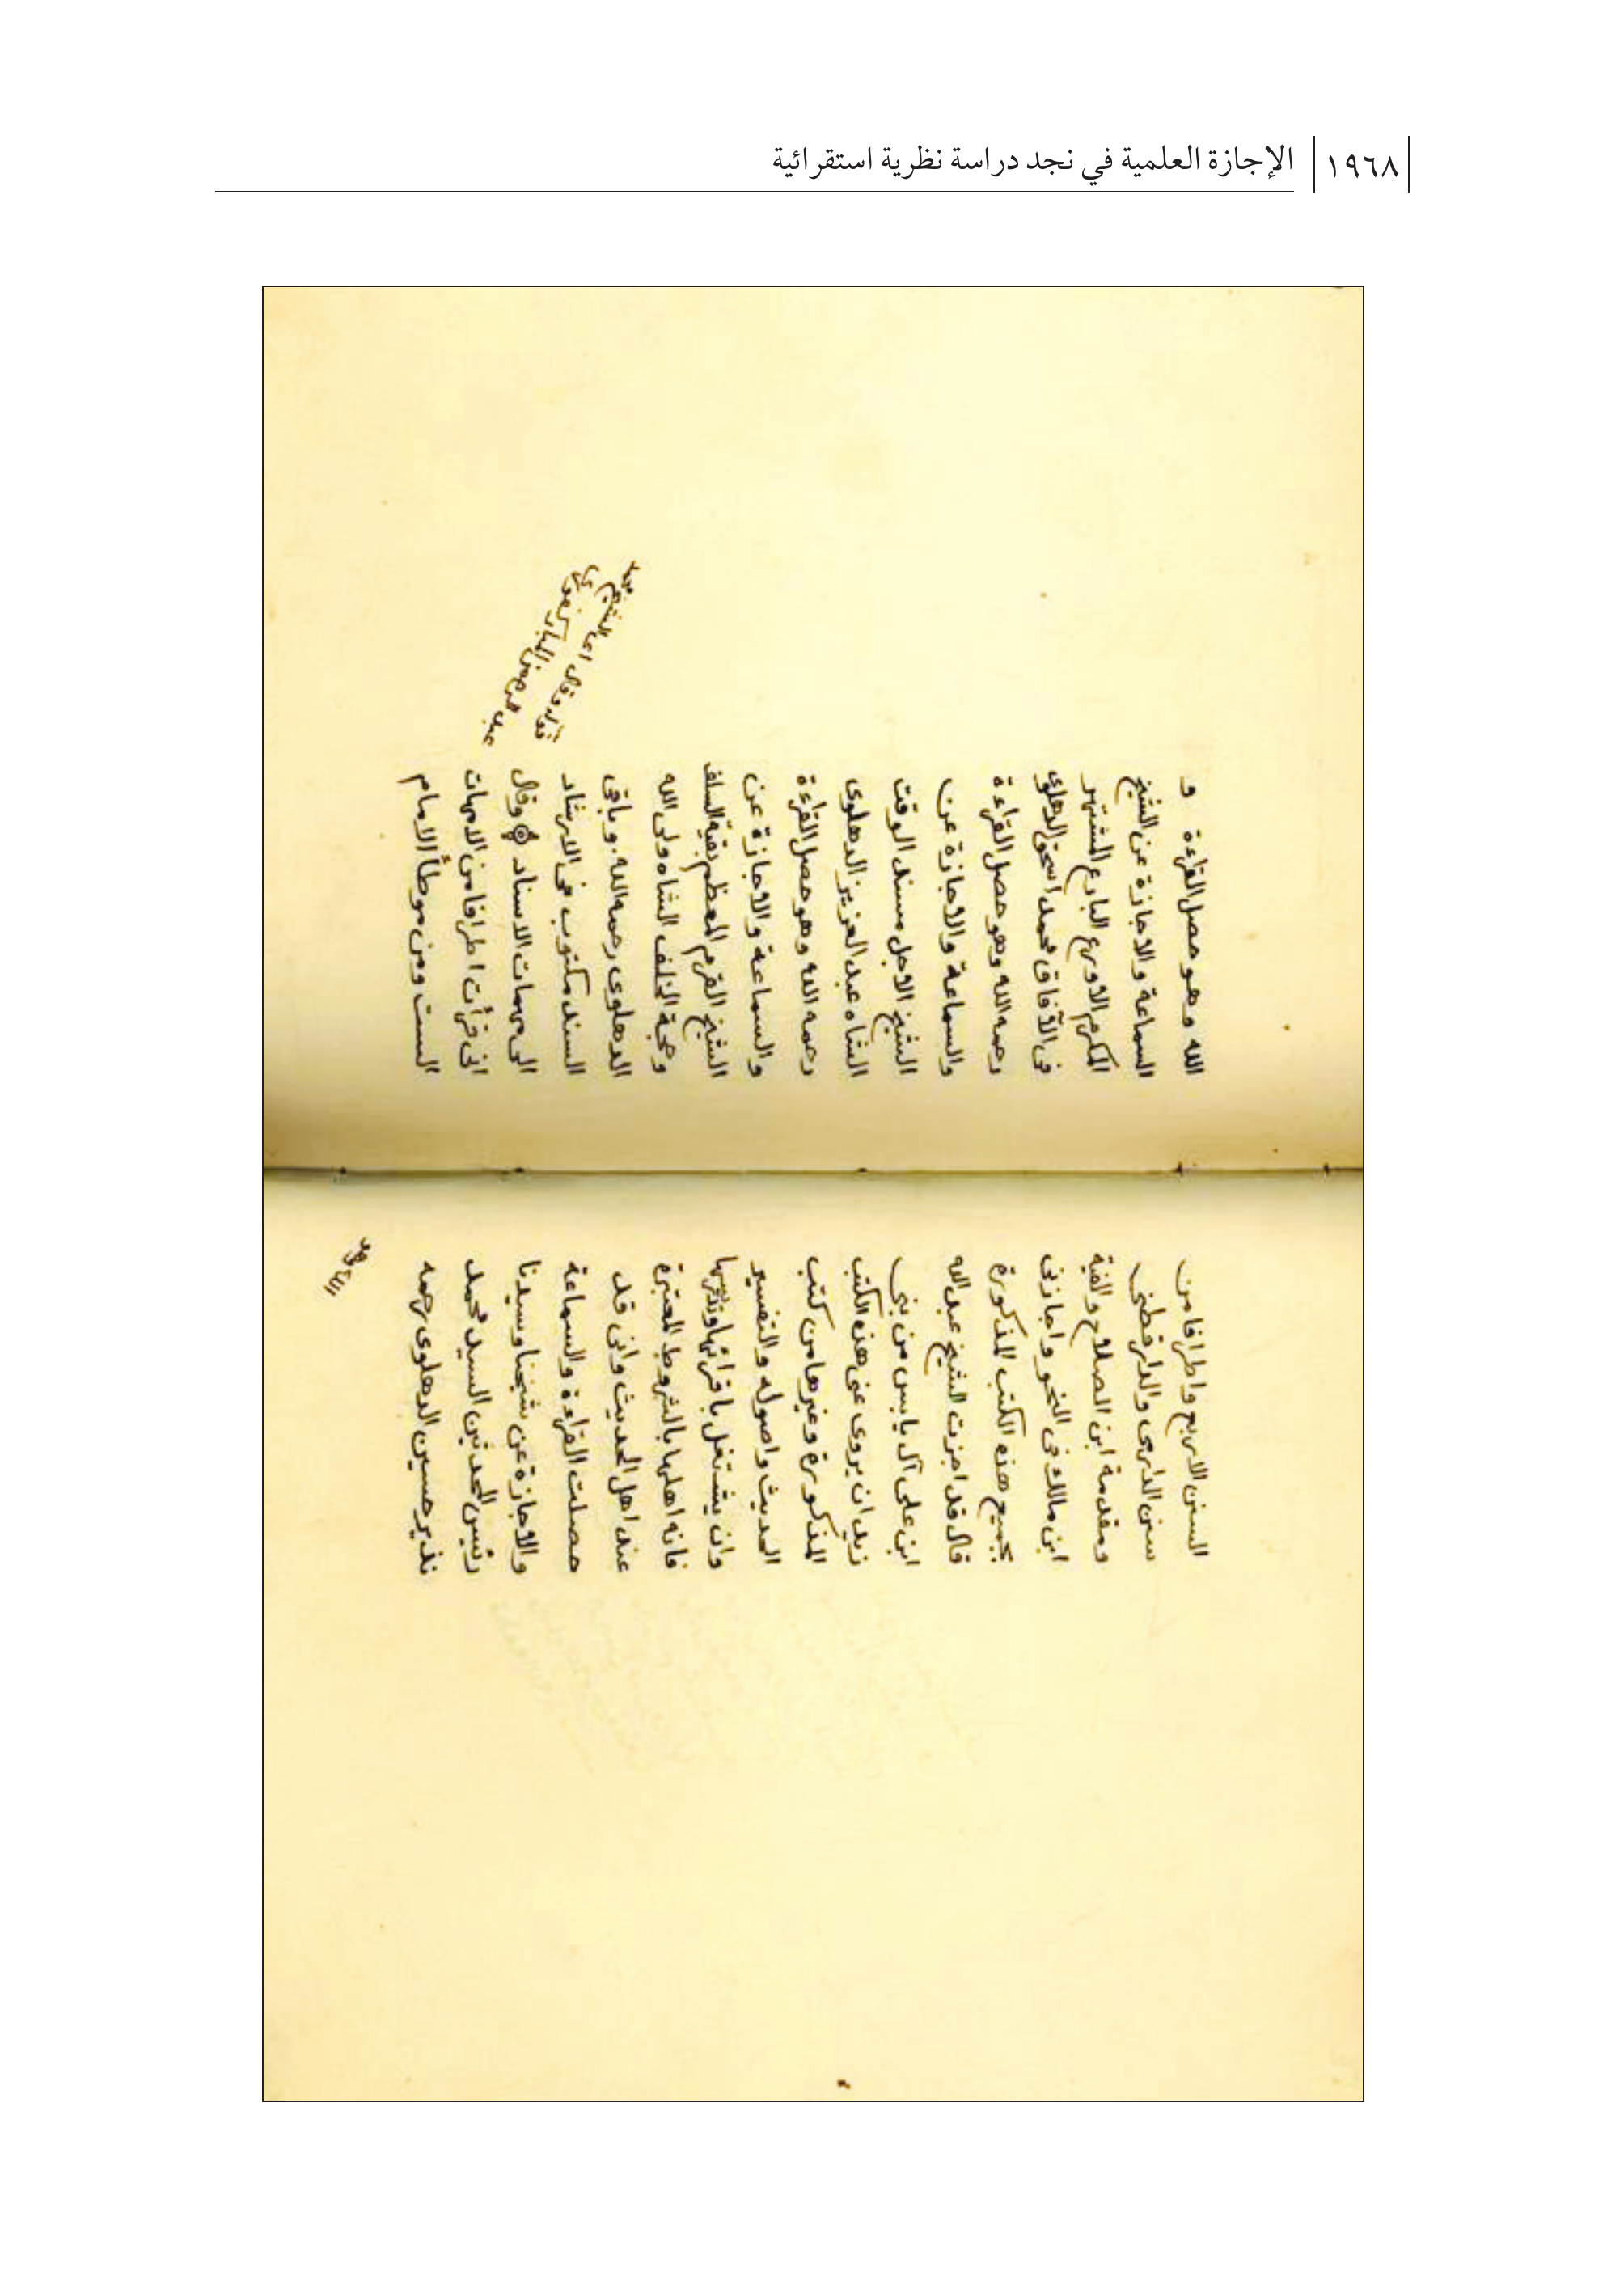 ١٩٦٨ الإجازة العلمية في نجد دراسة نظرية استقرائية
السنن الاربع واطرافا من
سنن الدارمى والدارقطنى
ومقدمة ابن الصلاح والفية
ابن مالك فى النحو واجازنى
بجميع هذه الكتب المذكورة
قال قد اجزت الشيخ عبد الله
ابن على آل يابس من بنى
زيد ان يروى عنى هذه الكتب
المذكورة وغيرها من كتب
الحديث واصوله والتفسير
وان يشتغل باقرائها وتدريسها
فانه اهلها بالشروط المعتبرة
عند اهل الحديث وانى قد
حصلت القراءة والسماعة
والاجازة عن شيخنا وسيدنا
رئيس المحدثين السيد محمد
نذير حسين الدهلوى رحمه
الله وهو
الله وهو حصل القراءة و
السماعة والاجازة عن الشيخ
المكرم الاورع البارع المشتهر
فى الآفاق محمد اسحق الدهلوى
رحمه الله وهو حصل القراءة
والسماعة والاجازة عن
الشيخ الاجل مسند الوقت
الشاه عبد العزيز الدهلوى
رحمه الله وهو حصل القراءة
والسماعة والاجازة عن
الشيخ القرم المعظم بقية السلف
وحجة الخلف الشاه ولى الله
الدهلوى رحمه الله. وباقى
السند مكتوب فى الارشاد
الى مهمات الاسناد وقال
انى قرأت اطرافا من الامهات
الست ومن موطأ الامام
قوله وقال اعنى الشيخ محمد
عبد الرحمن المباركفورى